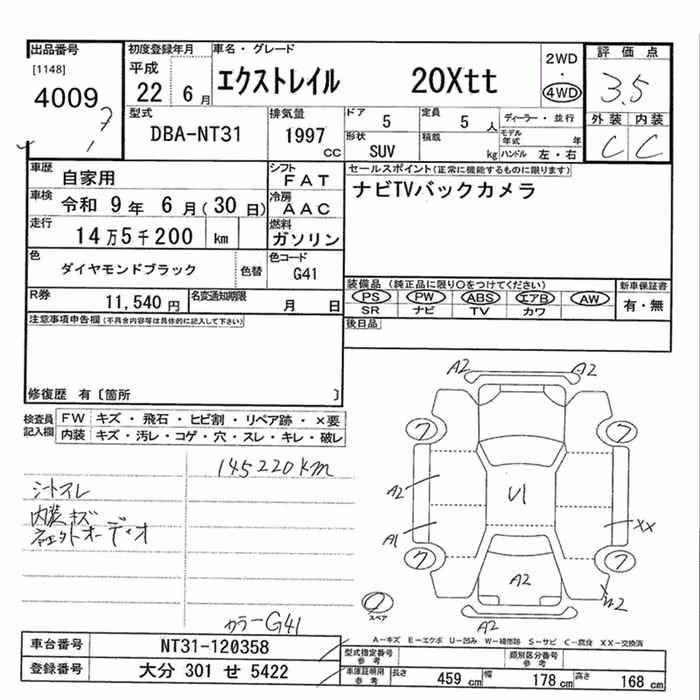 出品番号
[1148]
4009
初度登録年月
平成
22 6 月
車名・グレード
エクストレイル 20Xtt
2WD
・
4WD
評価点
3.5
外装 内装
C C
型式
DBA-NT31
排気量
1997
CC
ドア 5
定員 5 人
形状 SUV
積載 kg
ディーラー・並行
モデル年式 年式
ハンドル 左・右
車歴 自家用
シフト FAT
車検 令和 9 年 6 月(30 日)
冷房 AAC
走行 14 万 5 千 200 km
燃料 ガソリン
色 ダイヤモンドブラック 色替
色コード G41
R券 11,540 円
名変通知期限 月 日
セールスポイント(正常に機能するものに限ります)
ナビTVバックカメラ
装備品 (純正品に限り○をつけてください)
PS PW ABS エアB AW
SR ナビ TV カワ
新車保証書
有・無
後日品
注意事項申告欄(不具合内容等は具体的に記入して下さい)
修復歴 有〔箇所 〕
検査員記入欄
FW キズ・飛石・ヒビ割・リペア跡・×要
内装 キズ・汚レ・コゲ・穴・スレ・キレ・破レ
145220km
シートスレ
内装キズ
ネェクトオーディオ
カラーG41
A2 A2
7 7
A2
U1
A1
XX
7 7
A2
W2
A2
スペア
A-キズ E-エクボ U-凹み W-補修跡 S-サビ C-腐食 XX-交換済
車台番号 NT31-120358
登録番号 大分 301 せ 5422
型式指定番号
参考
類別区分番号
参考
車庫証明用
参考
長さ 459 cm 幅 178 cm 高さ 168 cm